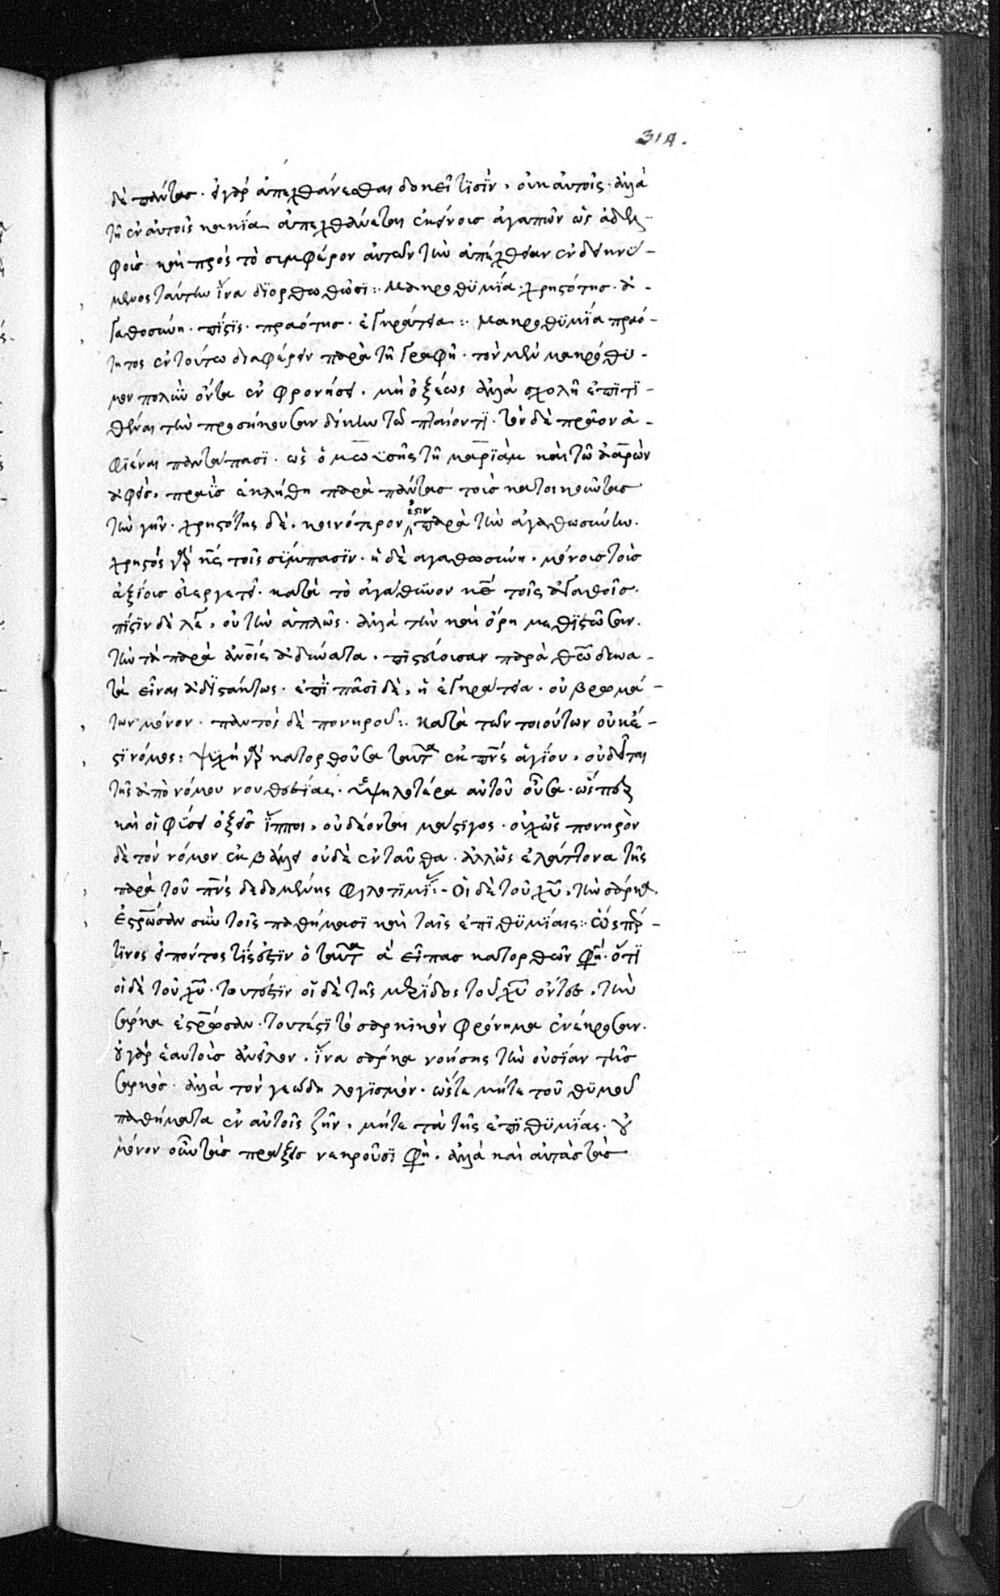 314.
δὲ πάντας. εἰ γὰρ ἀπεχθάνεσθαι δοκεῖ τισὶν, οὐκ αὐτοῖς. ἀλλὰ
τῇ ἐν αὐτοῖς κακία ἀπεχθάνεται ἐκείνοις ἀγαπῶν ὡς ἀδελ-
φοὺς καὶ πρὸς τὸ συμφέρον αὐτῶν τὴν ἀπέχθειαν ἐνδεικνύ-
μενος ταύτην ἵνα διορθωθῶσι: Μακροθυμία. χρηστότης. ἀ-
γαθοσύνη. πίστις. πραότης. ἐγκράτεια: Μακροθυμία πραό-
τητος ἐν τούτω διαφέρειν παρὰ τῇ γραφῇ. τὸν μὲν μακρόθυ-
μον πολὺν ὄντα ἐν φρονήσει. μὴ ὀξέως ἀλλὰ σχολῇ ἐπιτι-
θέναι τὴν προσήκουσαν δίκην τῶ πταίοντι. τὸν δὲ πρᾶον ἀ-
φιέναι παντάπασι. ὡς ὁ μωϋσῆς τῇ μαριὰμ καὶ τῶ ἀαρὼν
ἀφεὶς, πραῢς ἐκλήθη παρὰ πάντας τοὺς κατοικοῦντας
τὴν γῆν. χρηστότης δὲ, κοινότερον ἐστιν παρὰ τὴν ἀγαθωσύνην.
χρηστὸς γὰρ κς τοῖς σύμπασιν. ἡ δὲ αγαθωσύνη. μόνοις τοῖς
ἀξίοις εὐεργετεῖ. κατὰ τὸ ἀγάθυνον κε τοῖς ἀγαθοῖς.
πίστιν δὲ λέ, οὐ τὴν ἁπλῶς. ἀλλὰ τὴν καὶ ὄρη μεθιστῶσαν.
τὴν τὰ παρὰ ἀνοις ἀδύνατα. πιστεύουσαν παρὰ θεῶ δυνα-
τὰ εἶναι ἀδιστάκτως. ἐπὶ πᾶσι δὲ, ἡ ἐγκράτεια. οὐ βρωμά-
των μόνον. παντὸς δὲ πονηροῦ: Κατὰ τῶν τοιούτων οὐκ ἔ-
στι νόμος: Ψυχὴ γὰρ κατορθοῦσα ταῦτα ἐκ πνς ἁγίου, οὐ δεῖται
τῆς ἀπὸ νόμου νουθεσίας. ὑψηλοτέρα αὐτοῦ οὖσα. ὥσπερ
καὶ οἱ φύσει ὀξεῖς ἵπποι, οὐ δέονται μάστιγος. οὐχ ὡς πονηρὸν
δὲ τὸν νόμον ἐκβάλλει οὐδὲ ἐνταῦθα. ἀλλ' ὡς ἐλάττονα τῆς
παρὰ τοῦ πνς δεδομένης φιλοτιμί:- Οἱ δὲ τοῦ χυ, τὴν σάρκα
ἐσρωσαν σὺν τοῖς παθήμασι καὶ ταῖς ἐπιθυμίαις: Ὥσπερ
τινος εἰπόντος τίς ἐστιν ὁ ταῦτα ἃ εἶπας κατορθῶν φη. ὅτι
οἱ δὲ τοῦ χυ. τουτέστιν οἱ δὲ τῆς μερίδος τοῦ χυ ὄντες, τὴν
σάρκα ἐσρωσαν. τουτέστι τὸ σαρκικὸν φρόνημα ἐνέκρωσαν.
οὐ γὰρ ἑαυτοὺς ἀνεῖλον. ἵνα σάρκα νοήσης τὴν οὐσίαν τῆς
σαρκὸς. ἀλλὰ τὸν γεώδη λογισμόν. ὥστε μήτε τοῦ θυμοῦ
παθήματα ἐν αὐτοῖς ζῆν, μήτε τὰ τῆς ἐπιθυμίας. οὐ
μόνον οὖν τὰς πράξεις νεκροῦσι φη. ἀλλὰ καὶ αὐτὰς τὰς